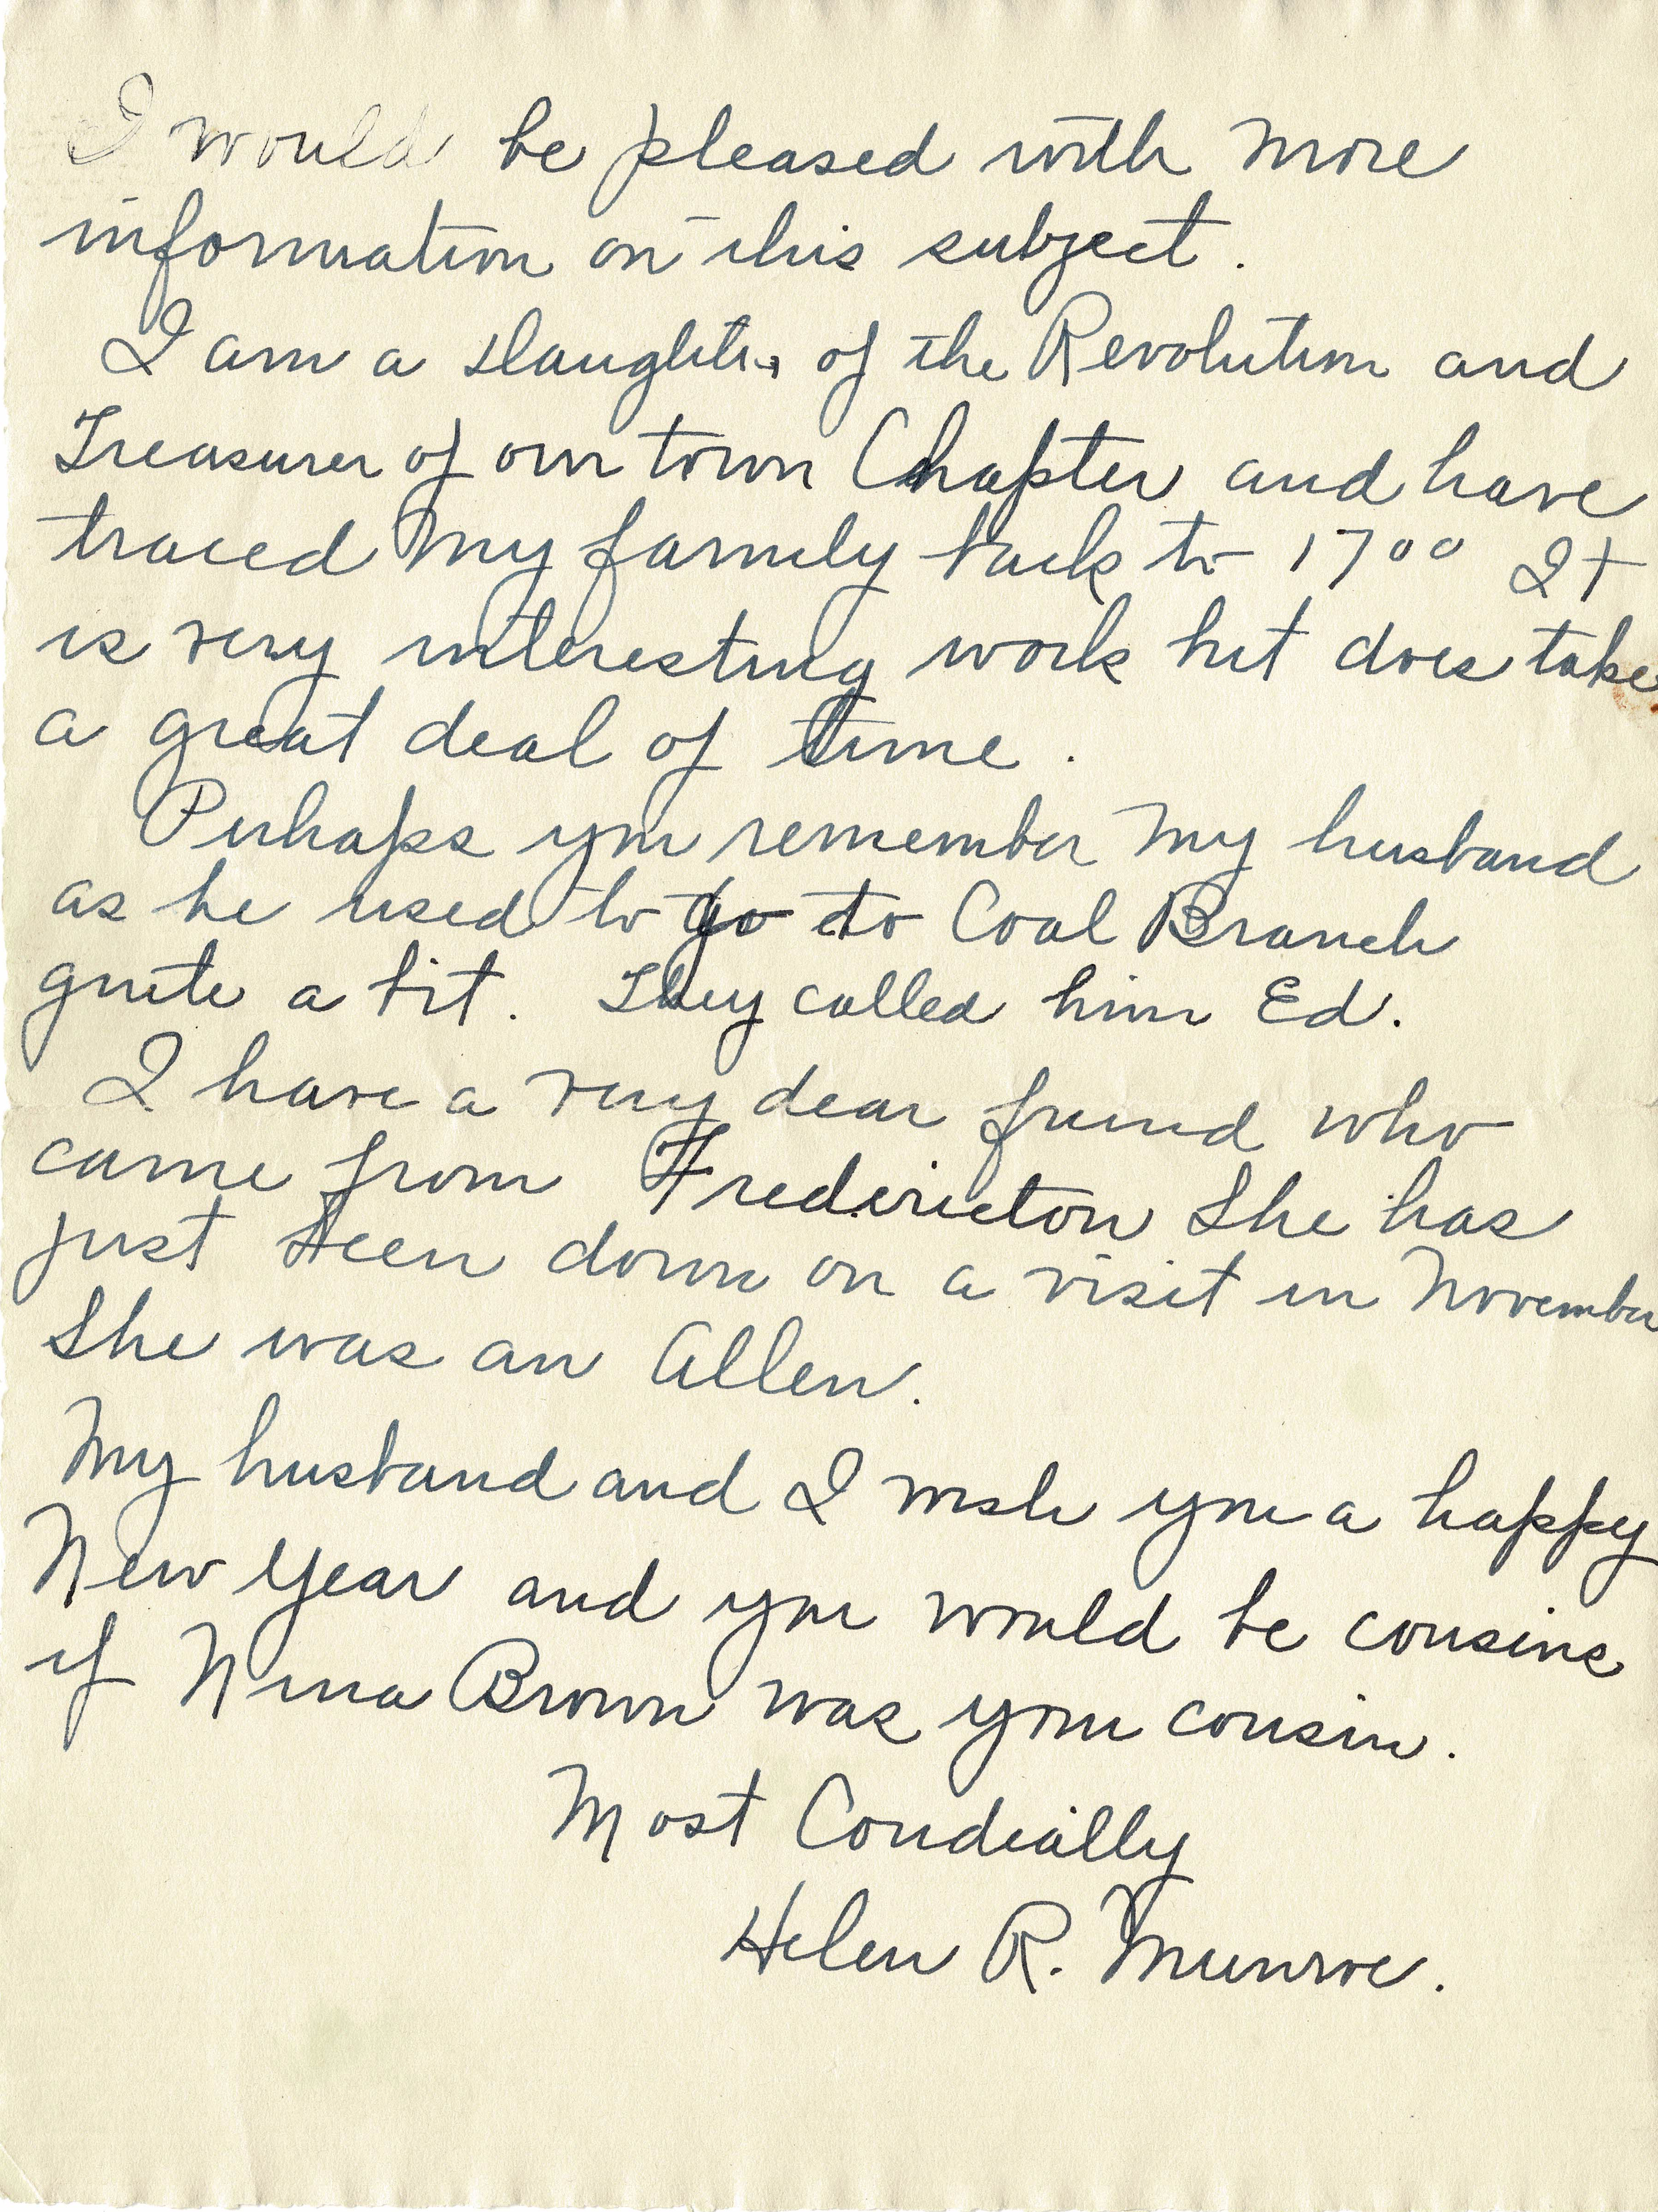 I would be pleased with more
information on this subject.
I am a daughter of the Revolution and
Treasurer of our town Chapter and have
traced my family back to 1700 It
is very interesting work but does take
a great deal of time.
Perhaps you remember my husband
as he used to go to Coal Branch
quite a bit. They called him Ed.
I have a very dear friend who
came from Fredericton She has
just been down on a visit in November
She was an Allen.
My husband and I wish you a happy
New Year and you would be cousins
if Nina Brown was your cousin.
Most Cordially
Helen R. Munroe.